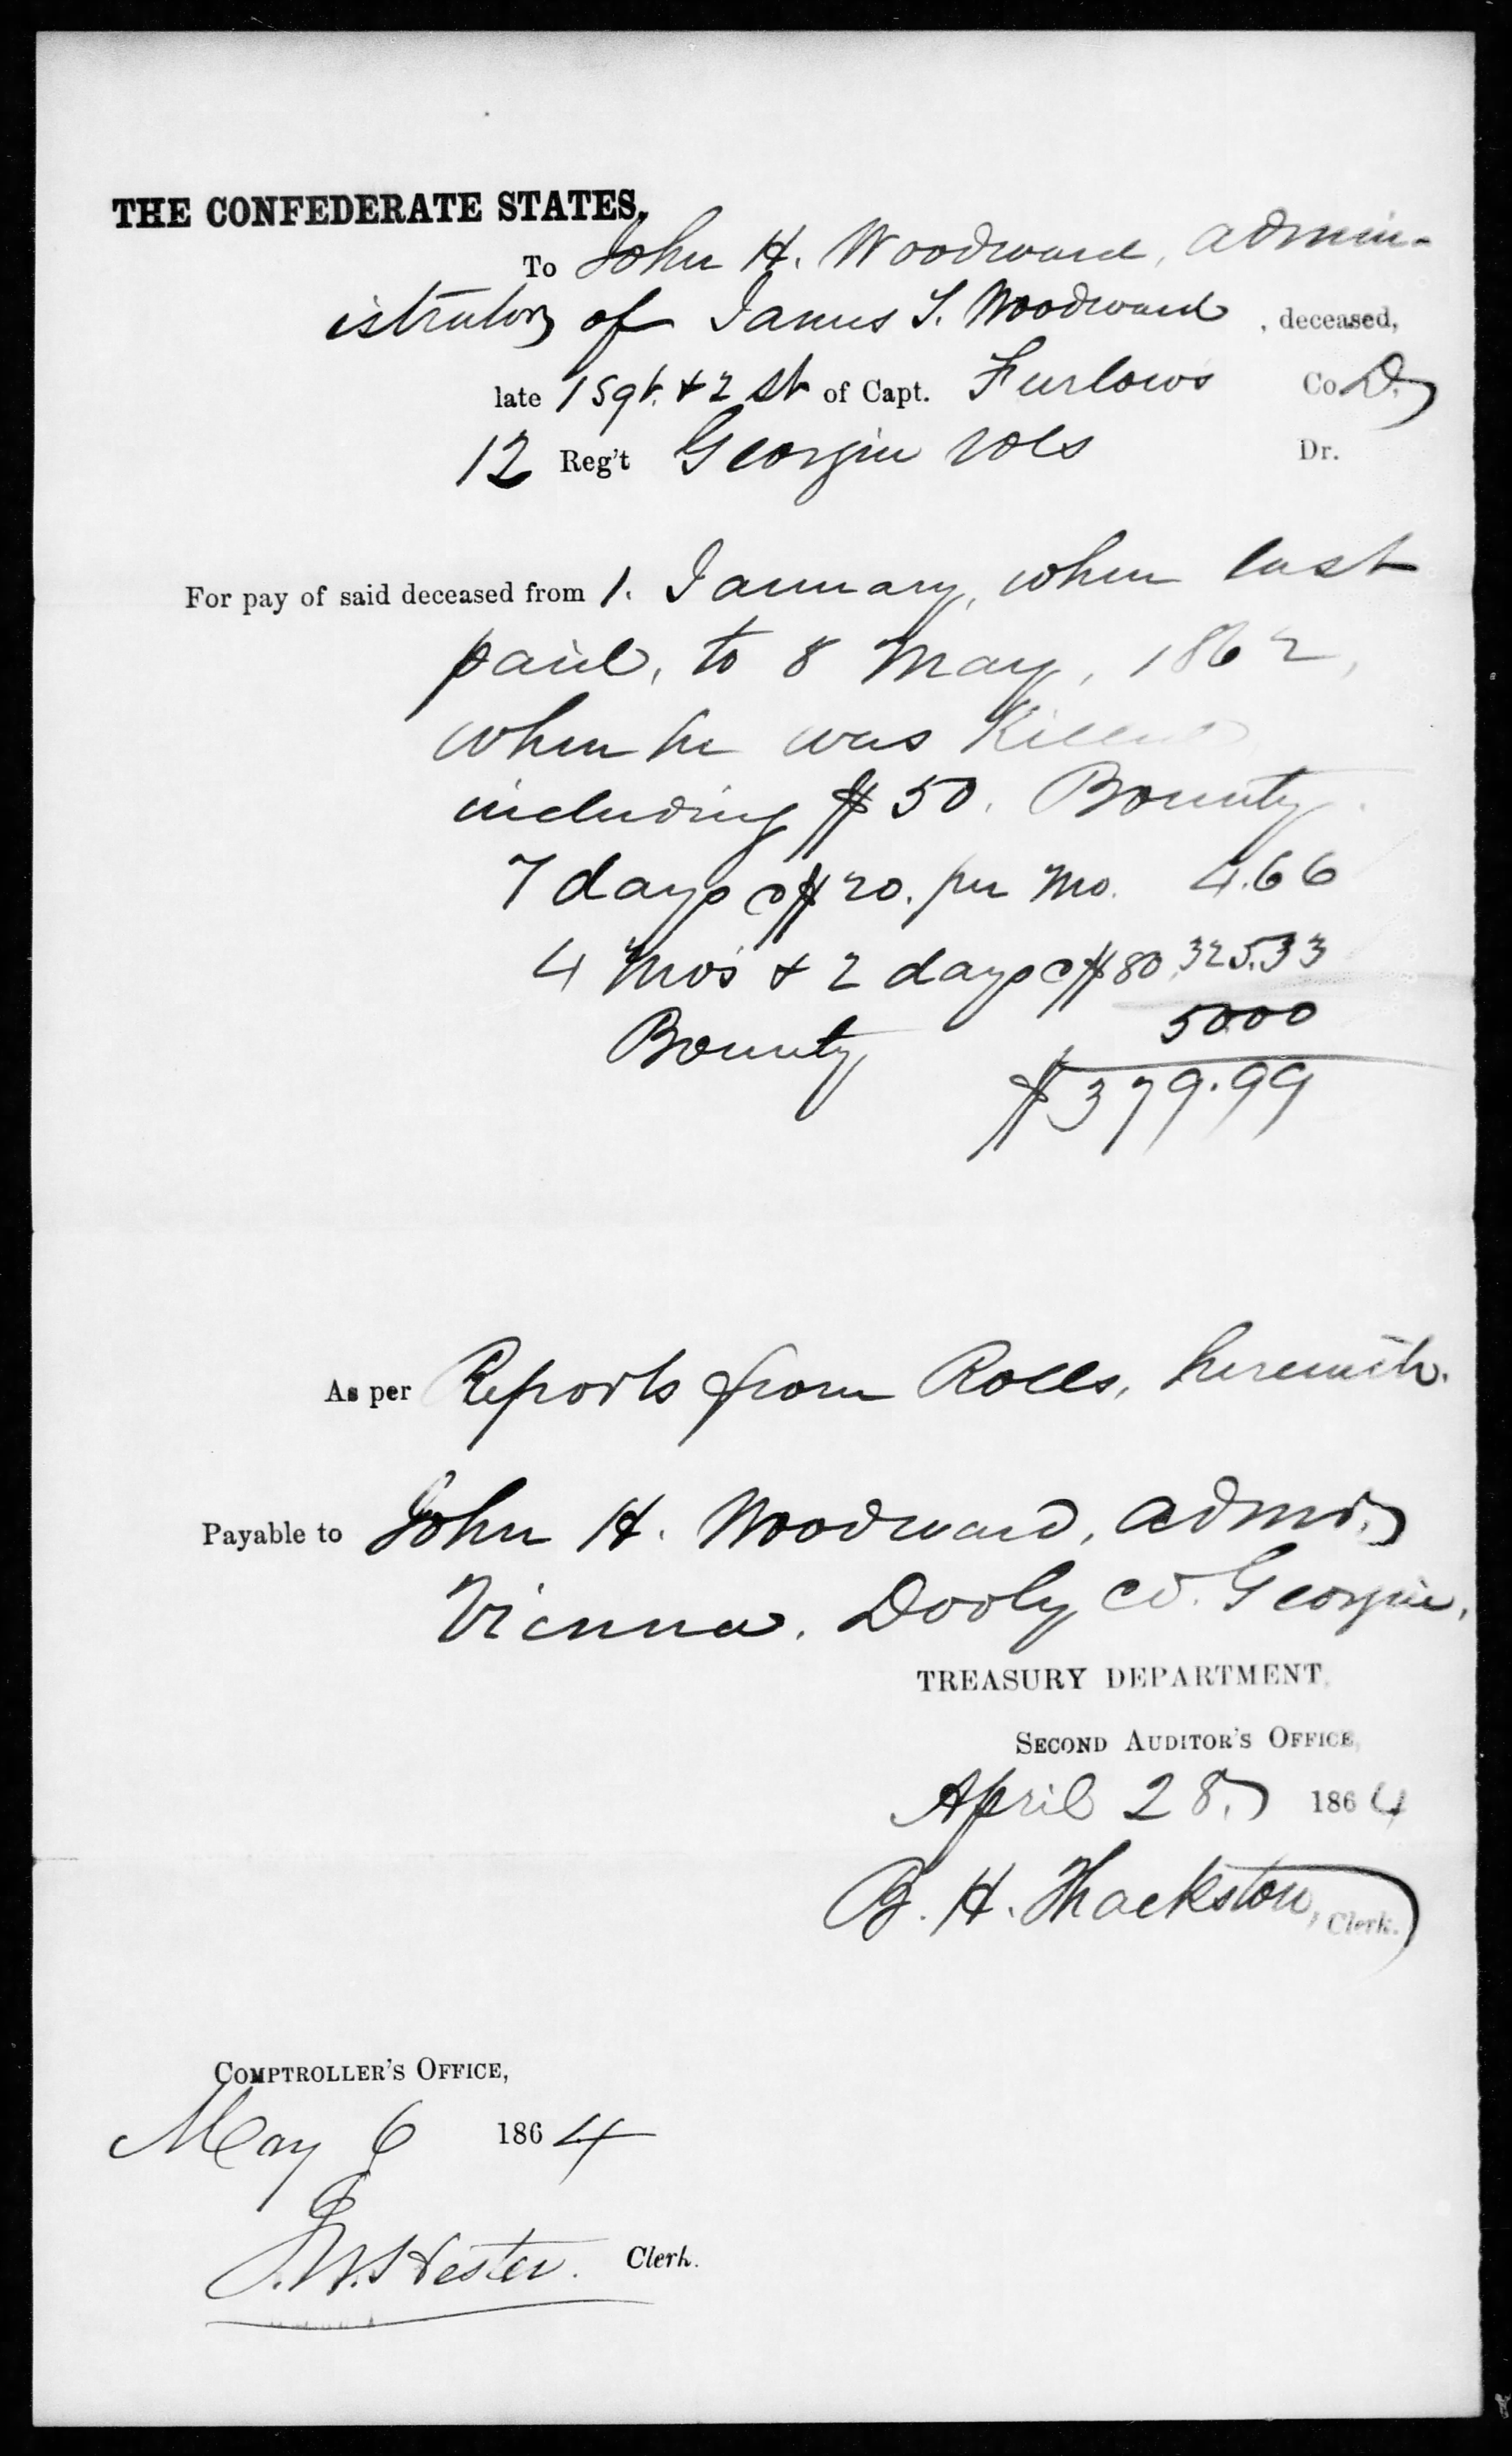 THE CONFEDERATE STATES,
To John H. Woodward, admin-
istrator of James T. Woodward, deceased,
late 1 Sgt. & 2 Lt of Capt. Furlows Co D,
12 Reg't Georgia Vols Dr.
For pay of said deceased from 1. January, when last
paid, to 8 May, 1862,
when he was Killed
including $50. Bounty.
7 days @ $20. per Mo. 4.66
4 Mos & 2 days @ $80 325.33
Bounty 50.00
$379.99
As per Reports from Rolls, herewith.
Payable to John H. Woodward, admr.
Vienna, Dooly Co. Georgia.
TREASURY DEPARTMENT,
SECOND AUDITOR'S OFFICE,
April 28, 1864
B. H. Thackston, Clerk.
COMPTROLLER'S OFFICE,
May 6 1864
J. W. Hester. Clerk.